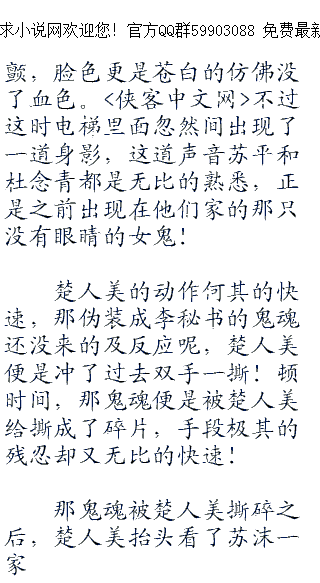 求小说网欢迎您！官方QQ群59903088 免费最新
颤，脸色更是苍白的仿佛没
了血色。<侠客中文网>不过
这时电梯里面忽然间出现了
一道身影，这道声音苏平和
杜念青都是无比的熟悉，正
是之前出现在他们家的那只
没有眼睛的女鬼！
楚人美的动作何其的快
速，那伪装成李秘书的鬼魂
还没来的及反应呢，楚人美
便是冲了过去双手一撕！顿
时间，那鬼魂便是被楚人美
给撕成了碎片，手段极其的
残忍却又无比的快速！
那鬼魂被楚人美撕碎之
后，楚人美抬头看了苏沫一
家